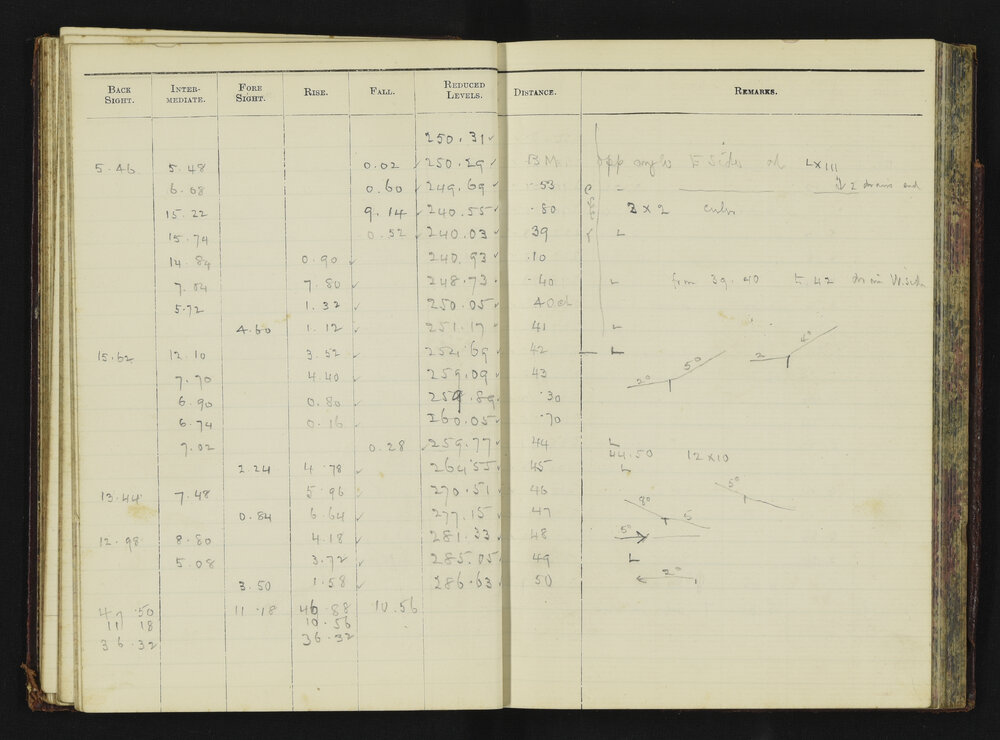 BACK SIGHT. INTER-MEDIATE. FORE SIGHT. RISE. FALL. REDUCED LEVELS. DISTANCE. REMARKS.
250.31
5.46 5.48 0.02 250.29 B M. opp angles to sides of LXIII
6.08 0.60 249.69 .53 2 drains and
15.22 9.14 240.55 .80 2 x 2 culv
15.74 0.52 240.03 39
14.84 0.90 240.93 .10
7.04 7.80 248.73 .40 from 39.40 to 42 drain
5.72 1.32 250.05 40
4.60 1.12 251.17 41
15.62 12.10 3.52 254.69 42 2 4°
7.70 4.40 259.09 43 2° 5°
6.90 0.80 259.89 .30
6.74 0.16 260.05 .70
7.02 0.28 259.77 44
44.50 12 x 10
2.24 4.78 264.55 45
13.44 7.48 5.96 270.51 46 5°
0.84 6.64 277.15 47 8° 5
12.98 8.80 4.18 281.33 48 5°
5.08 3.72 285.05 49
3.50 1.58 286.63 50 2°
47.50 11.18 46.88 10.56
11 18 10.56
36.32 36.32